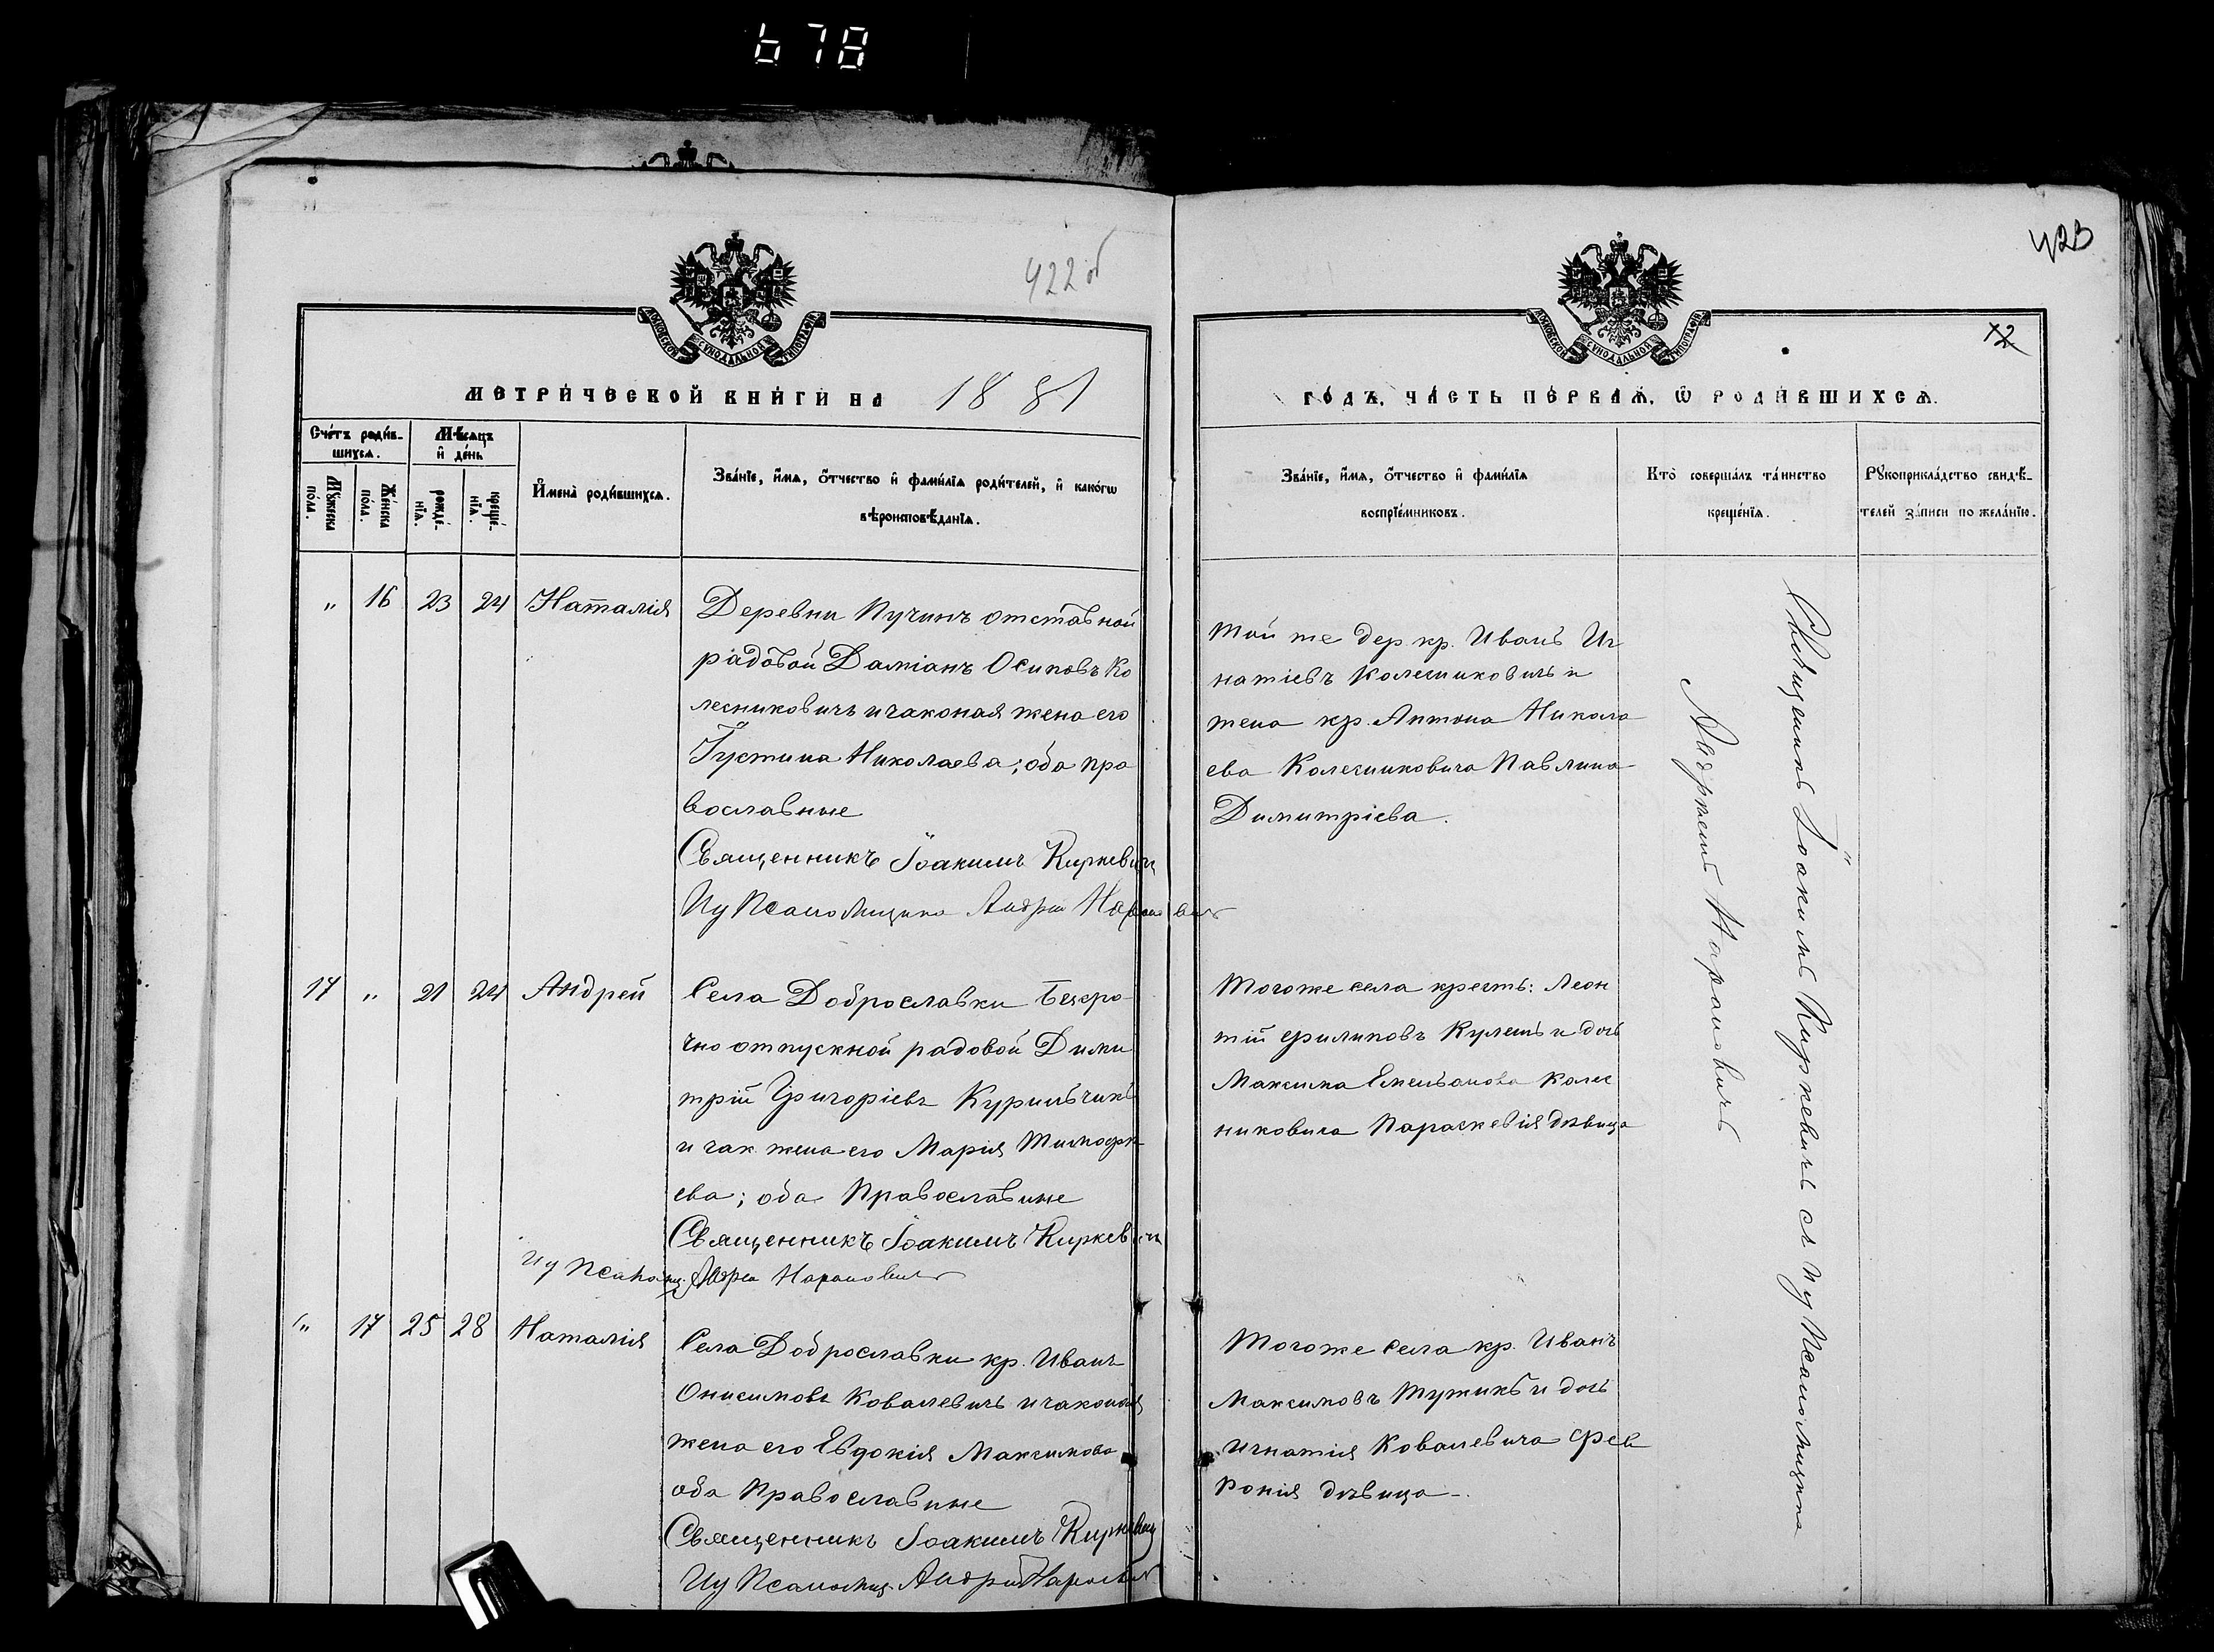 678
422 об
423
12
МОСКОВСКОЙ СѴНОДАЛЬНОЙ ТИПОГРАФІИ
МОСКОВСКОЙ СѴНОДАЛЬНОЙ ТИПОГРАФІИ
МЕТРИ́ЧЕСКОЙ КНИ́ГИ НА 1881
ГО́ДЪ, ЧА́СТЬ ПЕ́РВАѦ, Ѡ РОДИ́ВШИХСѦ.
Сче́тъ роди́в-
шихсѧ.
Мꙋ́жеска по́ла.
Же́нска по́ла.
Мѣ́сѧцъ
и҆ де́нь
рожде́-нїѧ.
креще́-нїѧ.
И҆мена̀ роди́вшихсѧ.
Зва́нїе, и҆́мѧ, ѻ҆́тчество и҆ фами́лїѧ роди́телей, и҆ како́гѡ
вѣроисповѣ́данїѧ.
Зва́нїе, и҆́мѧ, ѻ҆́тчество и҆ фами́лїѧ
воспрїе́мниковъ.
Кто̀ соверша́лъ та́инство
креще́нїѧ.
Рꙋкоприкла́дство свидѣ́-
телей за́писи по жела́нїю.
" 16 23 24 Наталія
Деревни Пучинъ отставной
рядовой Даміанъ Осиповъ Ко
лесниковичъ и законая жена его
Іустина Николаева; оба пра
вославные
Священникъ Іоакимъ Киркевичъ
Иу Псаломщика Андрей Нарановичъ
Той же дер. кр. Иванъ Иг
натіевъ Колесниковичъ и
жена кр. Антона Никола
ева Колесниковича Павлина
Димитріева.
17 " 21 24 Андрей
Села Доброславки Безсро
чно отпускной рядовой Дими
трій Григоріевъ Курильчикъ
и зак. жена его Марія Тимофѣ
ева; оба Православные
Священникъ Іоакимъ Киркевичъ
Иу Псаломщ. Андрей Нарановичъ
Тогоже села крестъ: Леон
тій Филиповъ Кулешъ и дочь
Максима Емельянова Колес
никовича Параскевія дѣвица
" 17 25 28 Наталія
Села Доброславки кр. Иванъ
Онисимовъ Ковалевичъ и законая
жена его Евдокія Максимова
оба Православные
Священникъ Іоакимъ Киркевичъ
Иу Псаломщ. Андрей Нарановичъ
Тогоже села кр. Иванъ
Максимовъ Тужикъ и дочь
Игнатія Ковалевича Фев
ронія дѣвица -.
Священникъ Іоакимъ Киркевичъ съ Иу Псаломщика
Андреемъ Нарановичъ